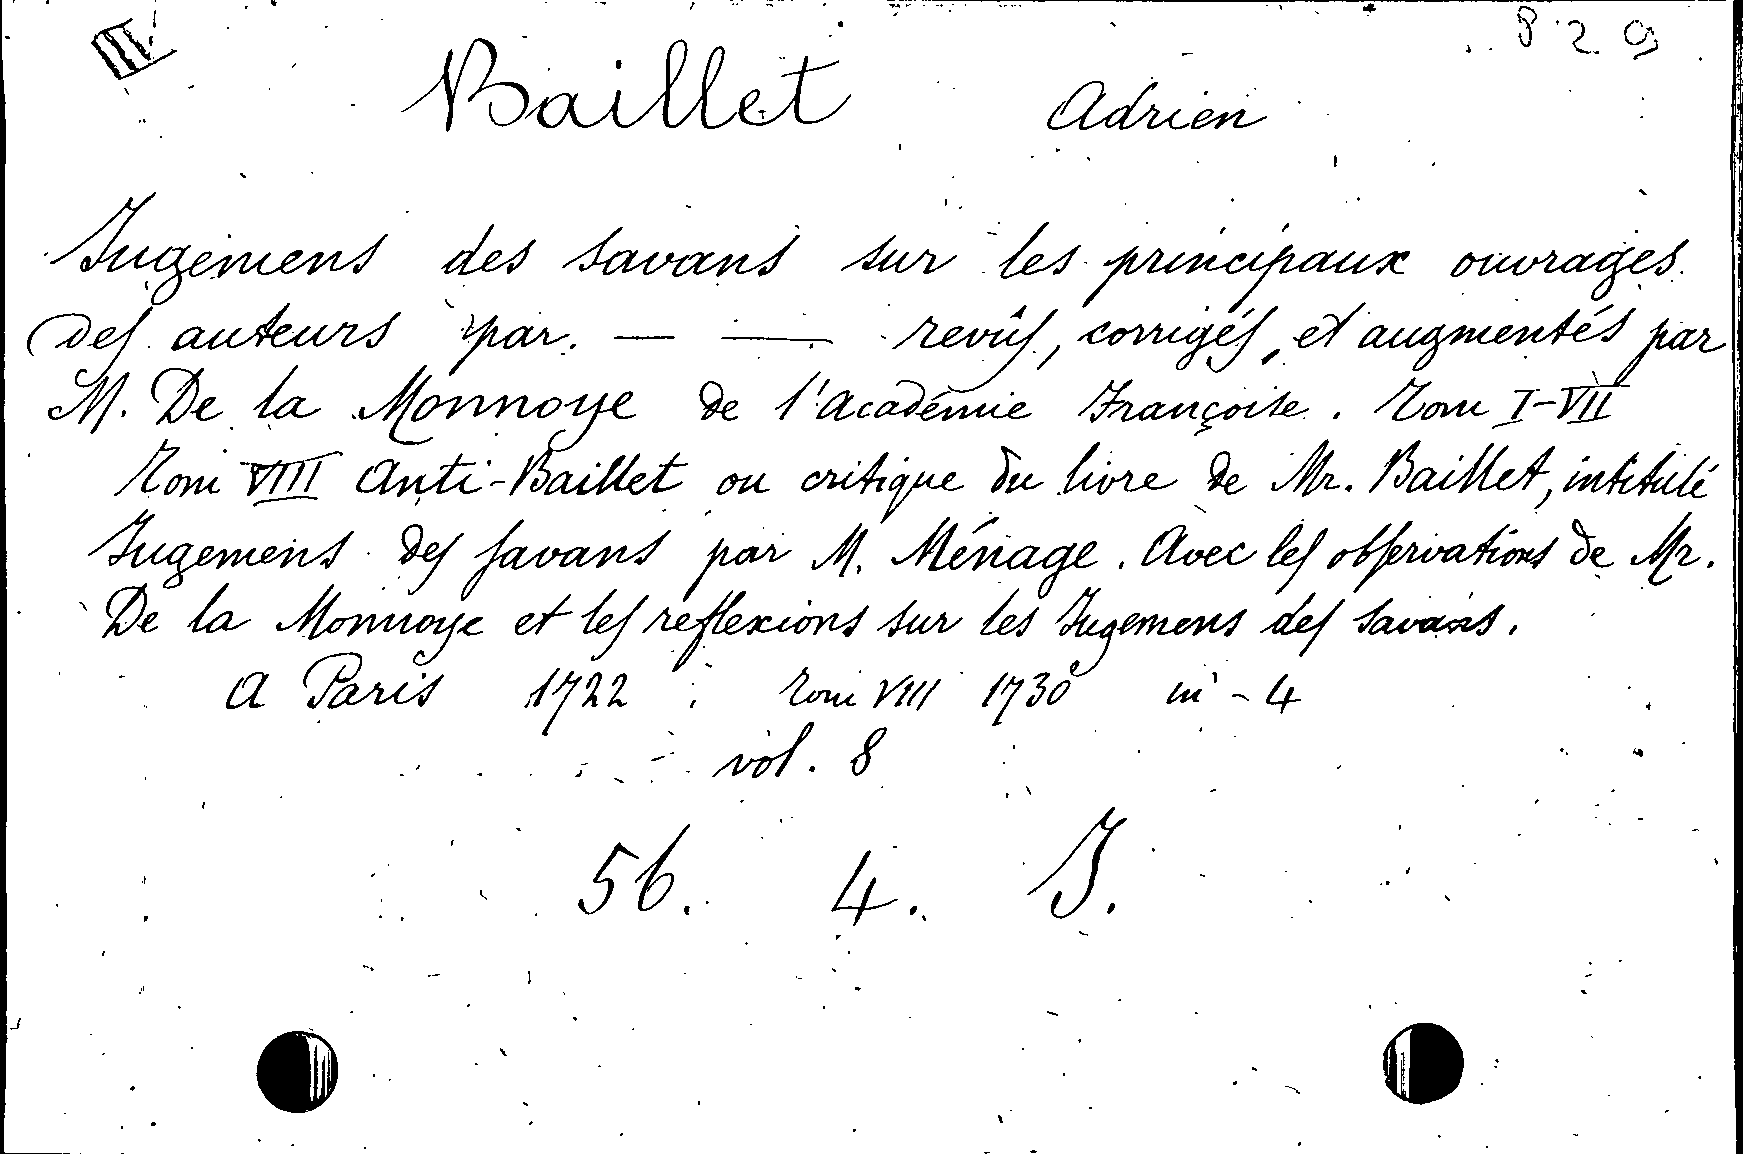 III 829
Baillet Adrien
Jugemens des savans sur les principaux ouvrages
des auteurs par. — — revûs, corrigés, et augmentés par
M. De la Monnoye de l'Académie Françoise. Tom I-VII
Tom VIII Anti-Baillet ou critique du livre de Mr. Baillet, intitulé
Jugemens des savans par M. Ménage. Avec les observations de Mr.
De la Monnoye et les reflexions sur les Jugemens des savans.
A Paris 1722 . Tom VIII 1730 in-4°
vol. 8
56. 4. J.